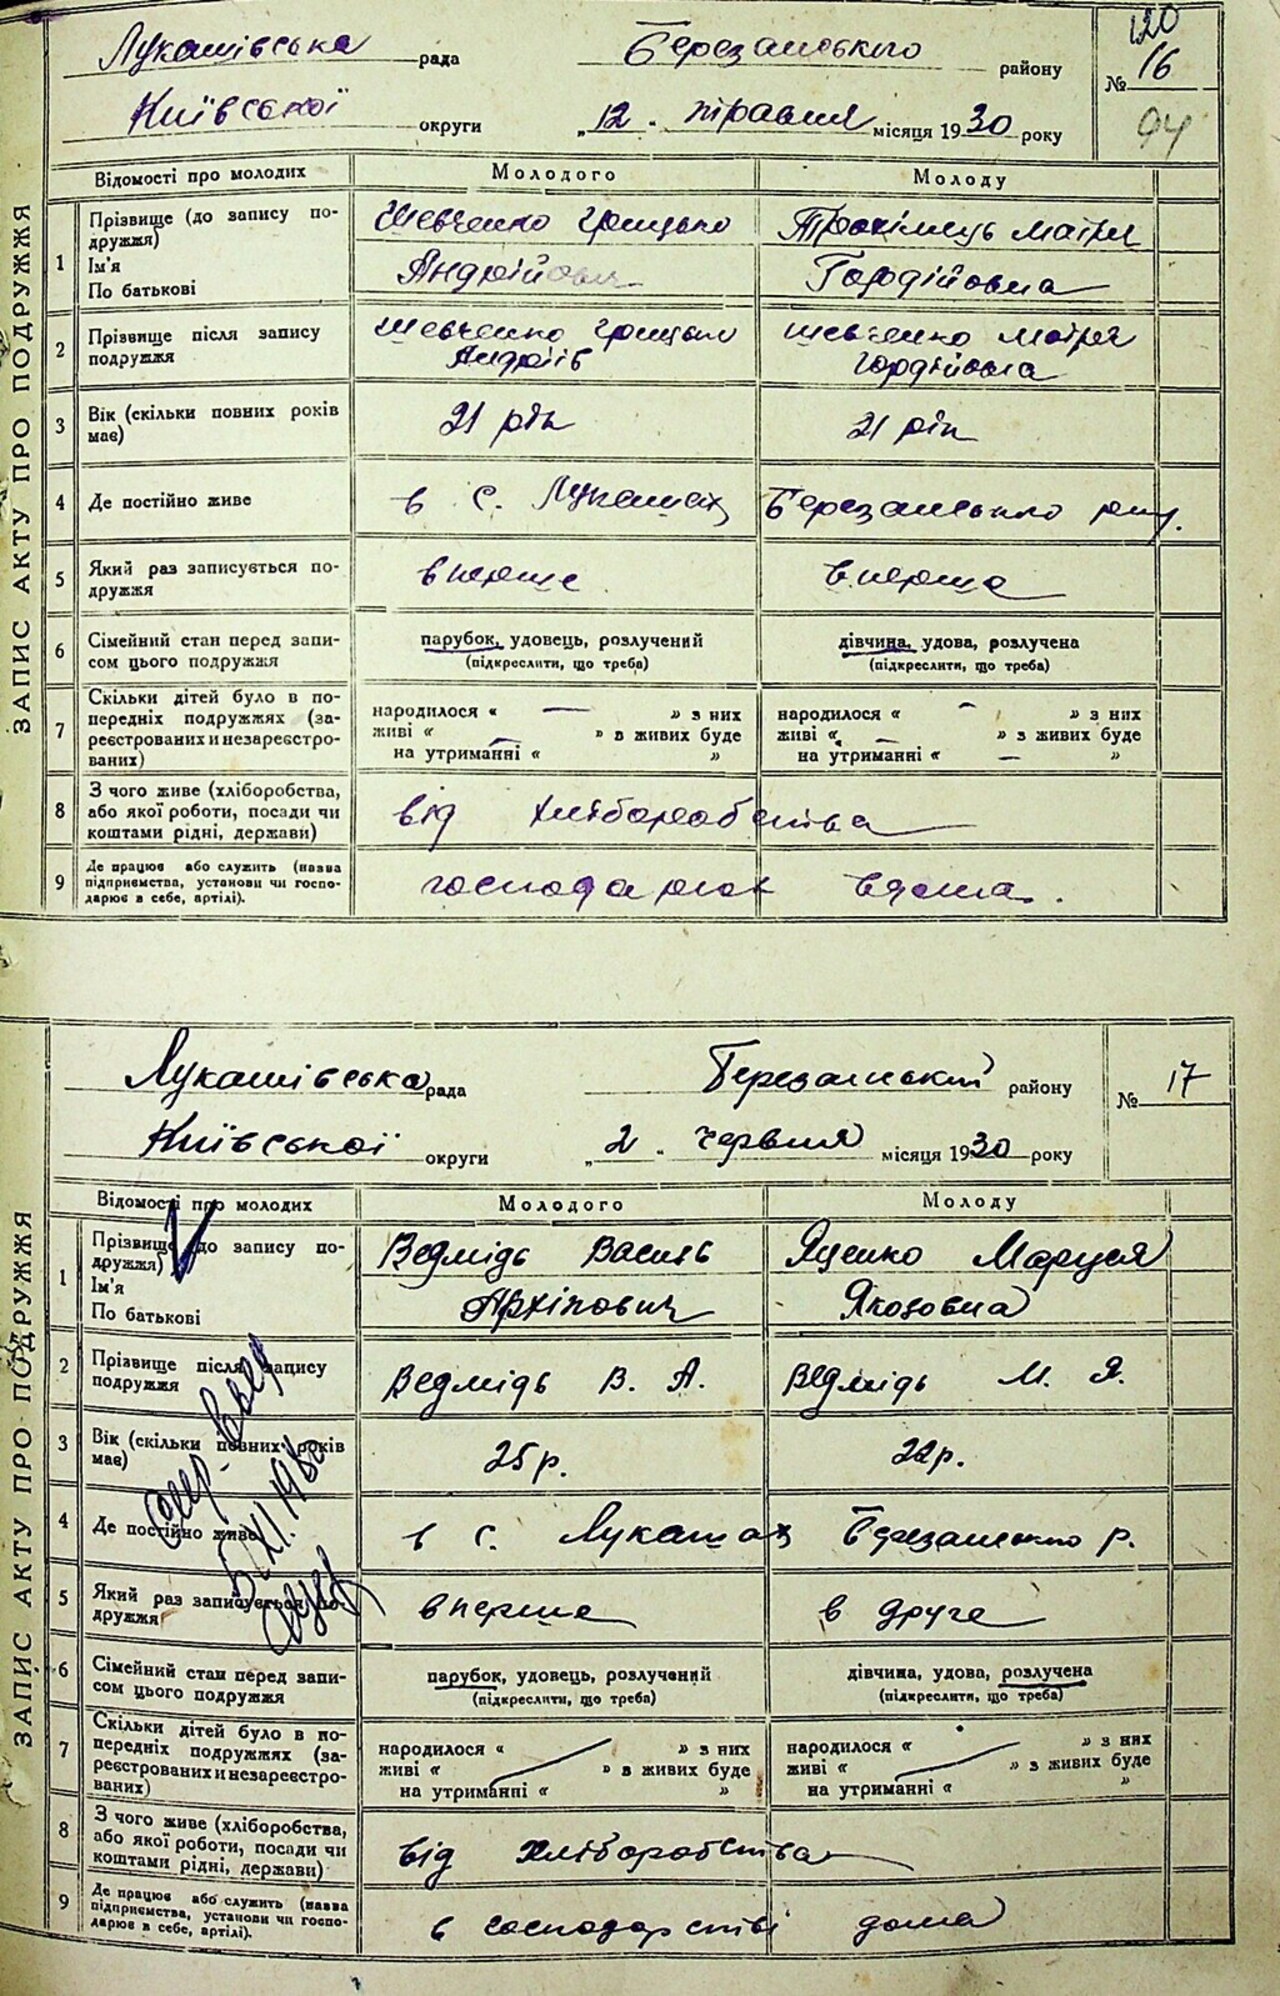 120
Лукашівська рада Березанського району № 16
Київської округи „12" травня місяця 1930 року 94
ЗАПИС АКТУ ПРО ПОДРУЖЖЯ
Відомості про молодих Молодого Молоду
1 Прізвище (до запису по-
дружжя)
Ім'я
По батькові
Шевченко Грицько
Андрійович
Матря
Гордійовна
2 Прізвище після запису
подружжя
Шевченко Грицько
Андріїв
Шевченко Матря
Гордійовна
3 Вік (скільки повних років
має)
21 рік 21 рік
4 Де постійно живе в с. Лукашах Березанського
5 Який раз записується по-
дружжя
вперше вперше
6 Сімейний стан перед запи-
сом цього подружжя
парубок, удовець, розлучений
(підкреслити, що треба)
дівчина, удова, розлучена
(підкреслити, що треба)
7 Скільки дітей було в по-
передніх подружжях (за-
реєстрованих и незареєстро-
ваних)
народилося « — » з них
живі « — » в живих буде
на утриманні « »
народилося « — » з них
живі « — » з живих буде
на утриманні « — »
8 З чого живе (хліборобства,
або якої роботи, посади чи
коштами рідні, держави)
від хліборобства
9 Де працює або служить (назва
підприємства, установи чи госпо-
дарює в себе, артілі).
господарює вдома.
Лукашівська рада Березанський району № 17
Київської округи „2" червня місяця 1930 року
ЗАПИС АКТУ ПРО ПОДРУЖЖЯ
Відомості про молодих Молодого Молоду
1 Прізвище (до запису по-
дружжя)
Ім'я
По батькові
Ведмідь Василь
Архіпович
Яценко Маруся
Яковна
2 Прізвище після запису
подружжя
Ведмідь В. А. Ведмідь М. Я.
3 Вік (скільки повних років
має)
25 р. 22 р.
4 Де постійно живе в с. Лукашах Березанського р.
5 Який раз записується по-
дружжя
вперше в друге
6 Сімейний стан перед запи-
сом цього подружжя
парубок, удовець, розлучений
(підкреслити, що треба)
дівчина, удова, розлучена
(підкреслити, що треба)
7 Скільки дітей було в по-
передніх подружжях (за-
реєстрованих и незареєстро-
ваних)
народилося « » з них
живі « » в живих буде
на утриманні « »
народилося « » з них
живі « » з живих буде
на утриманні « »
8 З чого живе (хліборобства,
або якої роботи, посади чи
коштами рідні, держави)
від хліборобства
9 Де працює або служить (назва
підприємства, установи чи госпо-
дарює в себе, артілі).
в господарстві дома